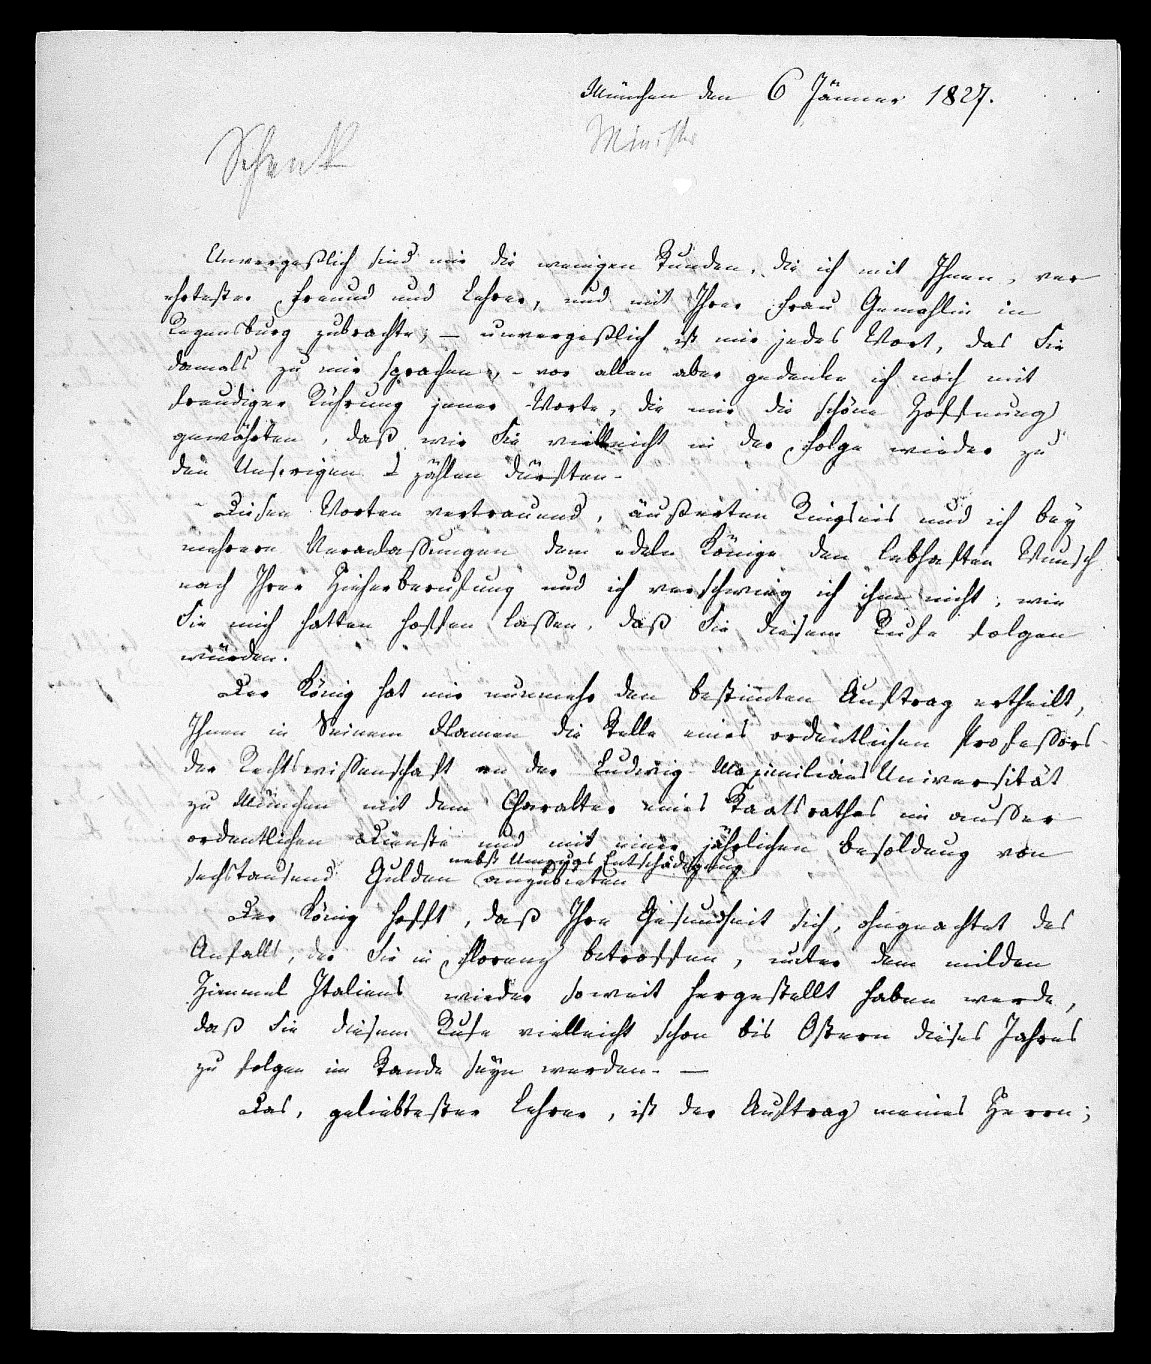 München den 6 Jänner 1827.
Minister
Schenk
Unvergeßlich sind mir die wenigen Stunden, die ich mit Ihnen, ver
ehrtester Freund und Lehrer, und mit Ihrer Frau Gemahlin in
Regensburg zubrachte; – unvergeßlich ist mir jedes Wort, das Sie
damals zu mir sprachen, – vor allen aber gedenke ich noch mit
freudiger Rührung jener Worte, die mir die schöne Hoffnung
gewährten, daß wir Sie vielleicht in der Folge wieder zu
den Unsrigen zählen dürften.
Diesen Worten vertrauend, äußerten Ringseis und ich bey
mehrern Veranlaßungen dem edeln Könige den lebhaften Wunsch
nach Ihrer Hieherberufung und ich verschwieg ich ihm nicht, wie
Sie mich hatten hoffen laßen, daß Sie diesem Rufe folgen
würden.
Der König hat mir nunmehr den bestimmten Auftrag ertheilt,
Ihnen in Seinem Namen die Stelle eines ordentlichen Professors
der Rechtswissenschaft an der Ludwig Maximilians Universität
zu München mit dem Charakter eines Staatsrathes im ausser
ordentlichen Dienste und mit einer jährlichen Besoldung von
nebst Umzugs Entschädigung
sechstausend Gulden anzubieten
Der König hofft, daß Ihre Gesundheit sich, ohngeachtet des
Anfalls, der Sie in Florenz betroffen, unter dem milden
Himmel Italiens wieder soweit hergestellt haben werde,
daß Sie diesem Rufe vielleicht schon bis Ostern dieses Jahres
zu folgen im Stande seyn werden. –
Das, geliebtester Lehrer, ist der Auftrag meines Herrn;